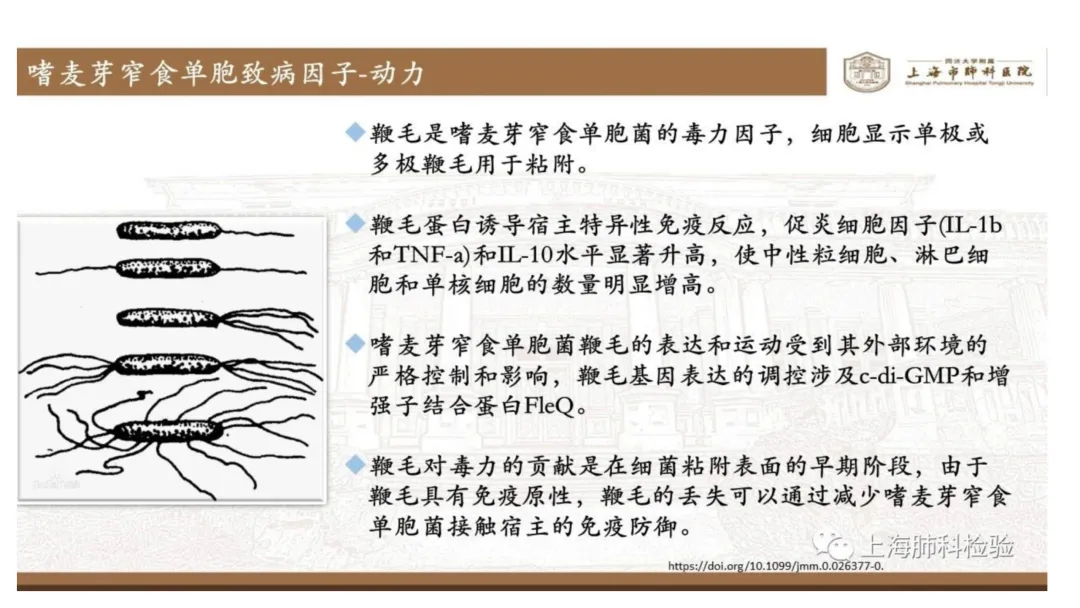 嗜麦芽窄食单胞致病因子-动力
同济大学附属
上海市肺科医院
Shanghai Pulmonary Hospital Tongji University
鞭毛是嗜麦芽窄食单胞菌的毒力因子，细胞显示单极或
多极鞭毛用于粘附。
鞭毛蛋白诱导宿主特异性免疫反应，促炎细胞因子(IL-1b
和TNF-a)和IL-10水平显著升高，使中性粒细胞、淋巴细
胞和单核细胞的数量明显增高。
嗜麦芽窄食单胞菌鞭毛的表达和运动受到其外部环境的
严格控制和影响，鞭毛基因表达的调控涉及c-di-GMP和增
强子结合蛋白FleQ。
鞭毛对毒力的贡献是在细菌粘附表面的早期阶段，由于
鞭毛具有免疫原性，鞭毛的丢失可以通过减少嗜麦芽窄食
单胞菌接触宿主的免疫防御。
上海肺科检验
https://doi.org/10.1099/jmm.0.026377-0.